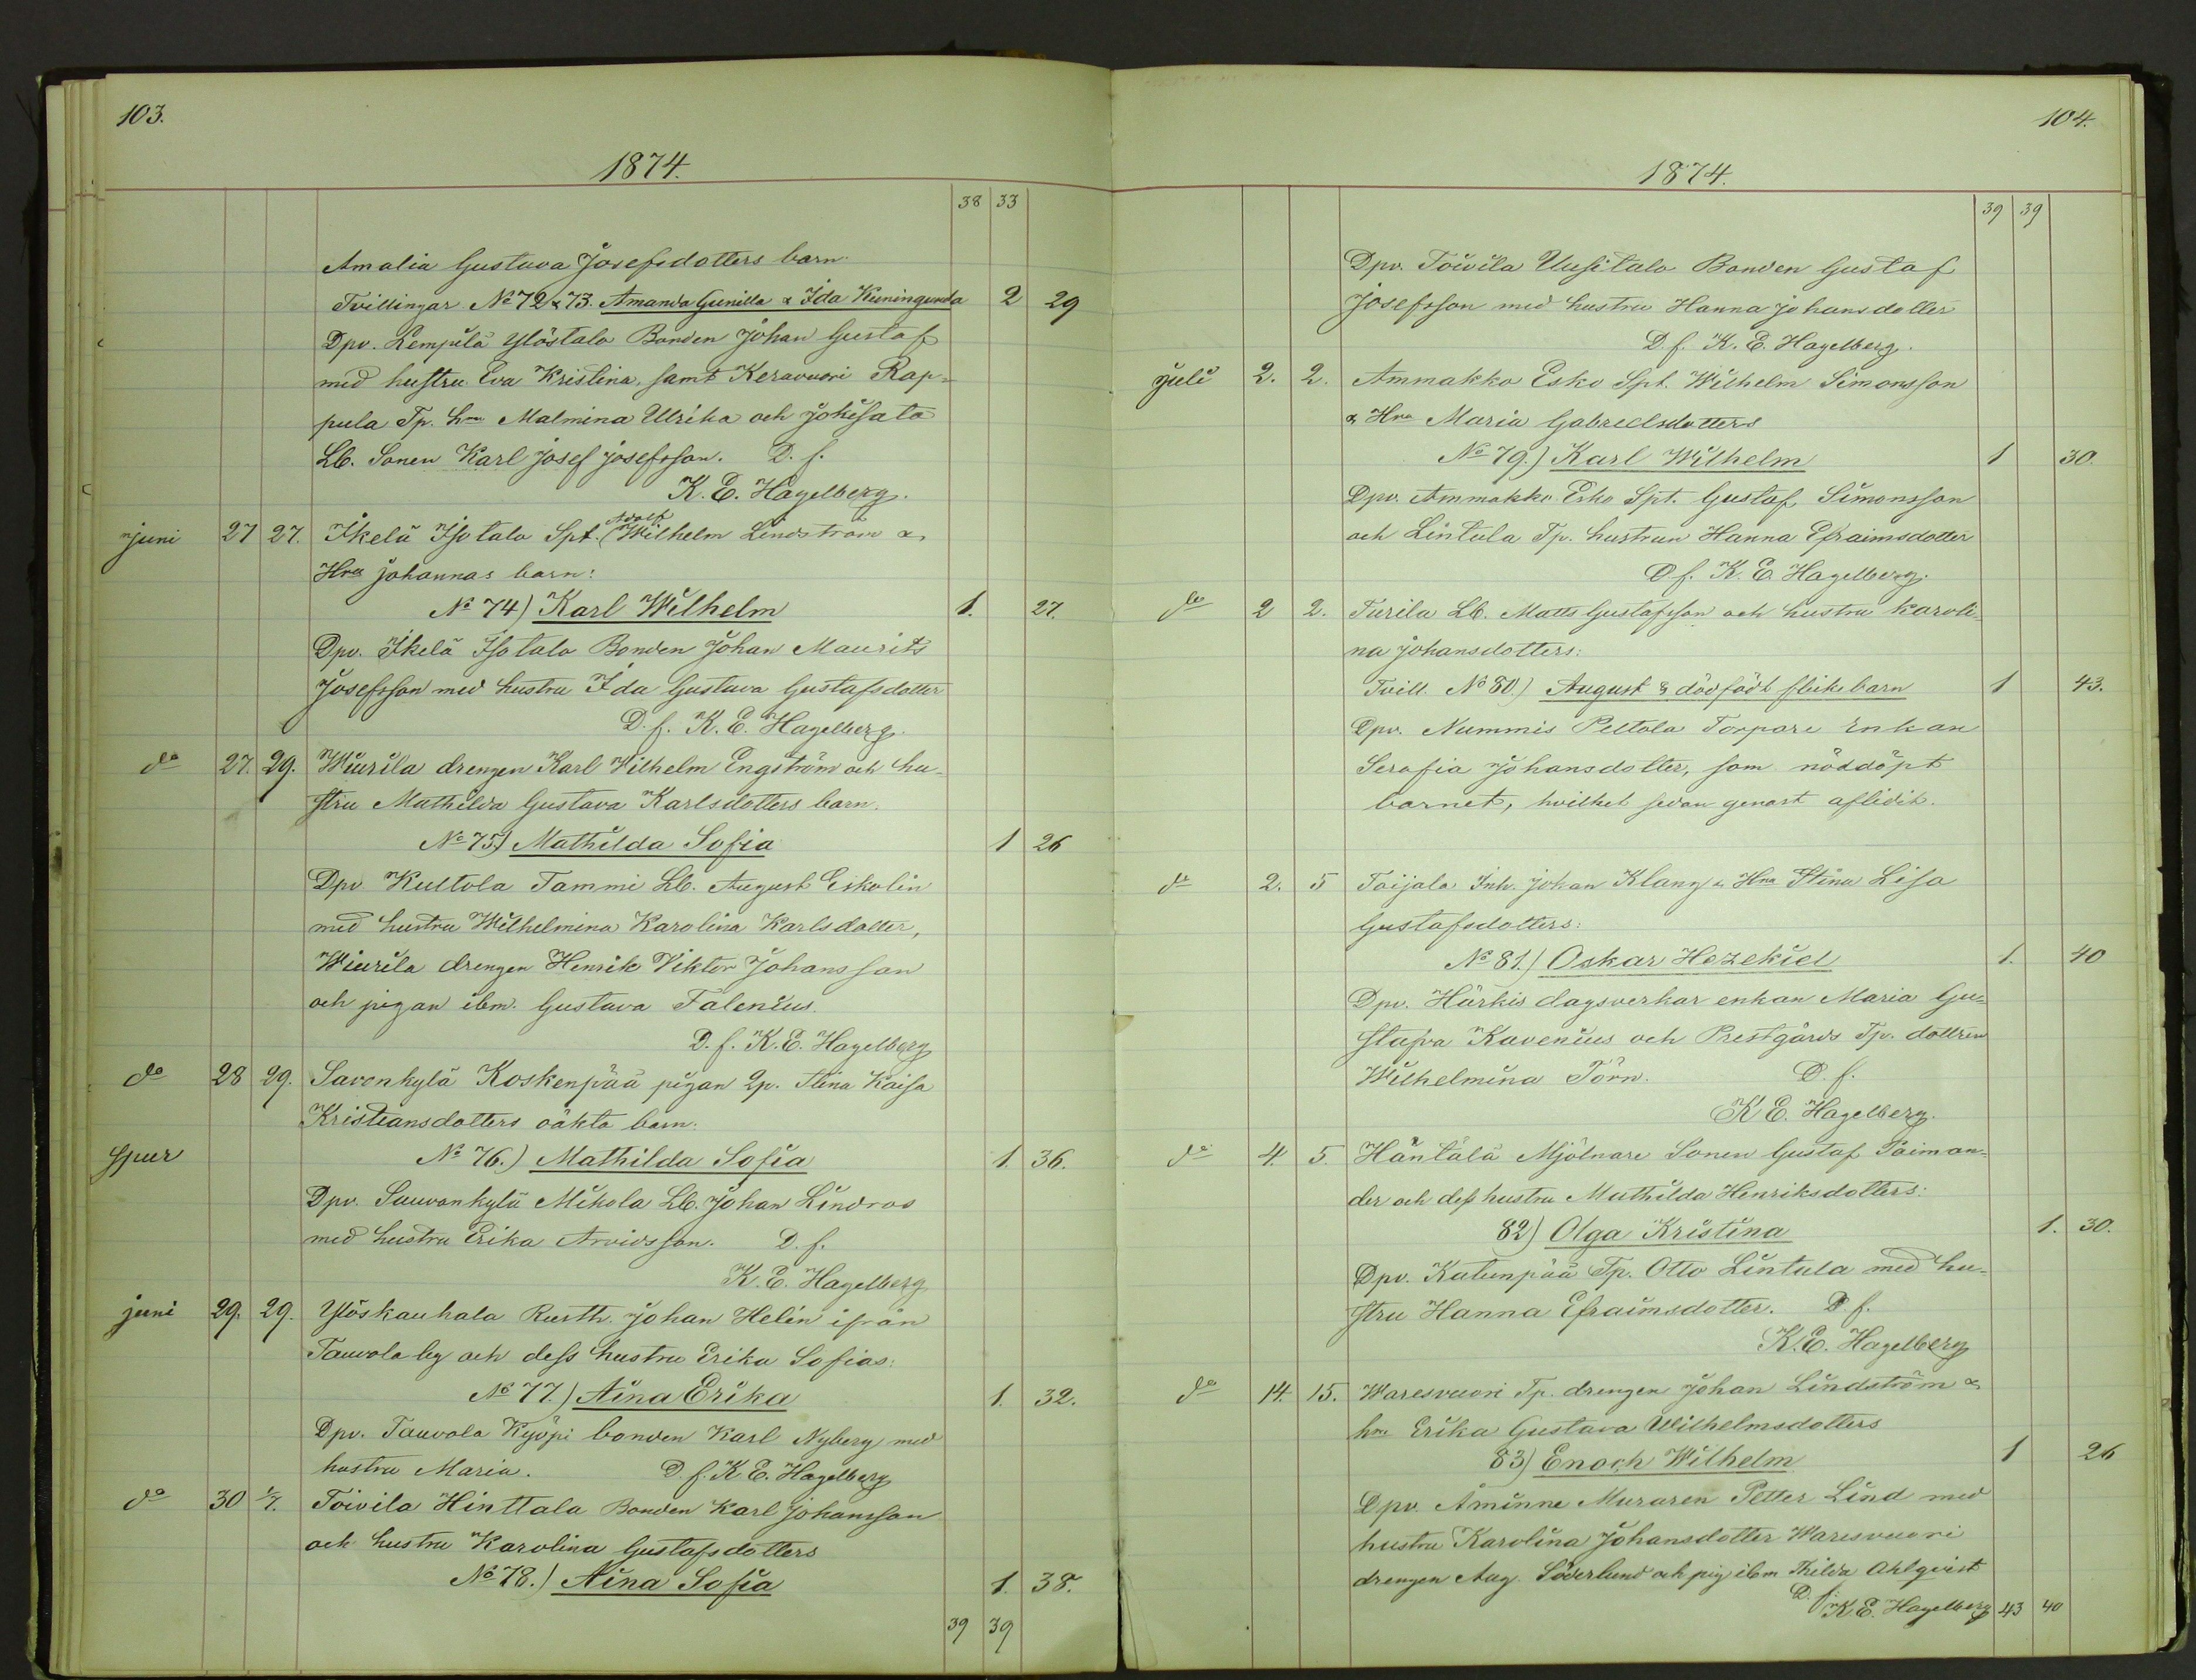 103.
1874.
38 33
Amalia Gustava Josefsdotters barn.
Tvillingar No 72 & 73. Amanda Gunilla & Ida Kuningunda 2 29
Dpv. Lempilä Ylöstalo Bonden Johan Gustaf
med hustru Eva Kristina, samt Keravuori Rap-
pula Tp. hru Malmina Ulrika och Jokisato
Lb. Sonen Karl Josef Josefsson. D. f.
K. E. Hagelberg.
juni 27 27. Ikelä Isotalo Spt. (Adolf) Wilhelm Lindström &
Hru Johannas barn:
No 74) Karl Wilhelm 1. 27.
Dpv. Ikelä Isotalo Bonden Johan Maurits
Josefsson med hustru Ida Gustava Gustafsdotter
D. f. K. E. Hagelberg.
do 27. 29. Wiurila drengen Karl Wilhelm Engström och hu-
stru Mathilda Gustava Karlsdotters barn.
No 75) Mathilda Sofia 1 26
Dpv Kultola Tammi Lb. August Eskolin
med hustru Wilhelmina Karolina Karlsdotter,
Wiurila drengen Henrik Viktor Johansson
och pigan ibm. Gustava Falenius.
D. f. K. E. Hagelberg
do 28 29. Savonkylä Koskenpää pigan Qp. Stina Kaisa
Kristiansdotters oäkta barn.
No 76.) Mathilda Sofia 1. 36.
Dpv. Sauvonkylä Mikola Lb. Johan Lindroos
med hustru Erika Arvidsson. D. f.
K. E. Hagelberg
juni 29. 29. Ylöskauhala Rusth. Johan Helin ifrån
Tauvola by och dess hustru Erika Sofias:
No 77.) Aina Erika 1. 32.
Dpv. Tauvola Kyöpi bonden Karl Nyberg med
hustru Maria. D. f. K. E. Hagelberg
do 30 1/7. Toivila Hinttala Bonden Karl Johansson
och hustru Karolina Gustafsdotters
No 78.) Aina Sofia 1. 38.
39 39
104.
1874.
39 39
Dpv. Toivila Uusitalo Bonden Gustaf
Josefsson med hustru Hanna Johansdotter
D. f. K. E. Hagelberg.
juli 2. 2. Ammakko Esko Spt. Wilhelm Simonsson
& Hru Maria Gabrielsdotters
No 79.) Karl Wilhelm 1 30.
Dpv. Ammakko Esko Spt. Gustaf Simonsson
och Lintula Tp. hustrun Hanna Efraimsdotter
D f. K. E. Hagelberg.
do 2 2. Turila Lb. Matts Gustafsson och hustru Karoli-
na Johansdotters:
Tvill. No 80.) August & dödfödt flickebarn 1 43.
Dpv. Nummis Peltola Torpare Enkan
Serafia Johansdotter, som nöddöpt
barnet, hvilket sedan genast aflidit.
do 2. 5 Toijala Inh. Johan Klang & Hru Stina Lisa
Gustafsdotters:
No 81.) Oskar Hezekiel 1. 40
Dpv. Härkis dagsverkar enkan Maria Gu-
stafva Kavenius och Prestgårds Tp. dottren
Wilhelmina Törn. D. f.
K E. Hagelberg.
do 4. 5. Häntälä Mjölnare Sonen Gustaf Paiman-
der och dess hustru Mathilda Henriksdotters:
82) Olga Kristina 1. 30.
Dpv. Katunpää Tp. Otto Lintula med hu-
stru Hanna Efraimsdotter. D. f.
K. E. Hagelberg
do 14. 15. Waresvuori Tp. drengen Johan Lindström &
hru Erika Gustava Wilhelmsdotters
83) Enoch Wilhelm 1 26
Dpv. Åminne Muraren Petter Lind med
hustru Karolina Johansdotter Waresvuori
drengen Aug. Söderlund och pig ibm Thilda Ahlqvist
D. f. K E. Hagelberg 43 40